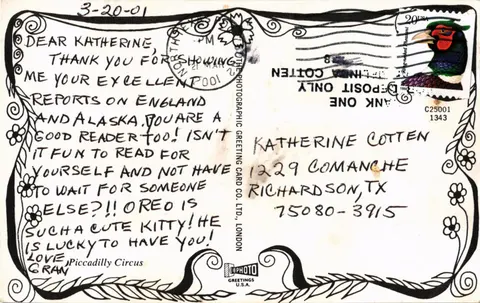 3-20-01
DEAR KATHERINE,
THANK YOU FOR SHOWING
ME YOUR EXCELLENT
REPORTS ON ENGLAND
AND ALASKA. YOU ARE A
GOOD READER TOO! ISN'T
IT FUN TO READ FOR
YOURSELF AND NOT HAVE
TO WAIT FOR SOMEONE
ELSE?!! OREO IS
SUCH A CUTE KITTY! HE
IS LUCKY TO HAVE YOU!
LOVE,
GRAN
Piccadilly Circus
PHOTOGRAPHIC GREETING CARD CO. LTD., LONDON
NORTH
PM
2001
20
ANK ONE
DEPOSIT ONLY
COTTEN
C25001
1343
KATHERINE COTTEN
1229 COMANCHE
RICHARDSON, TX
75080-3915
GREETINGS
U.S.A.